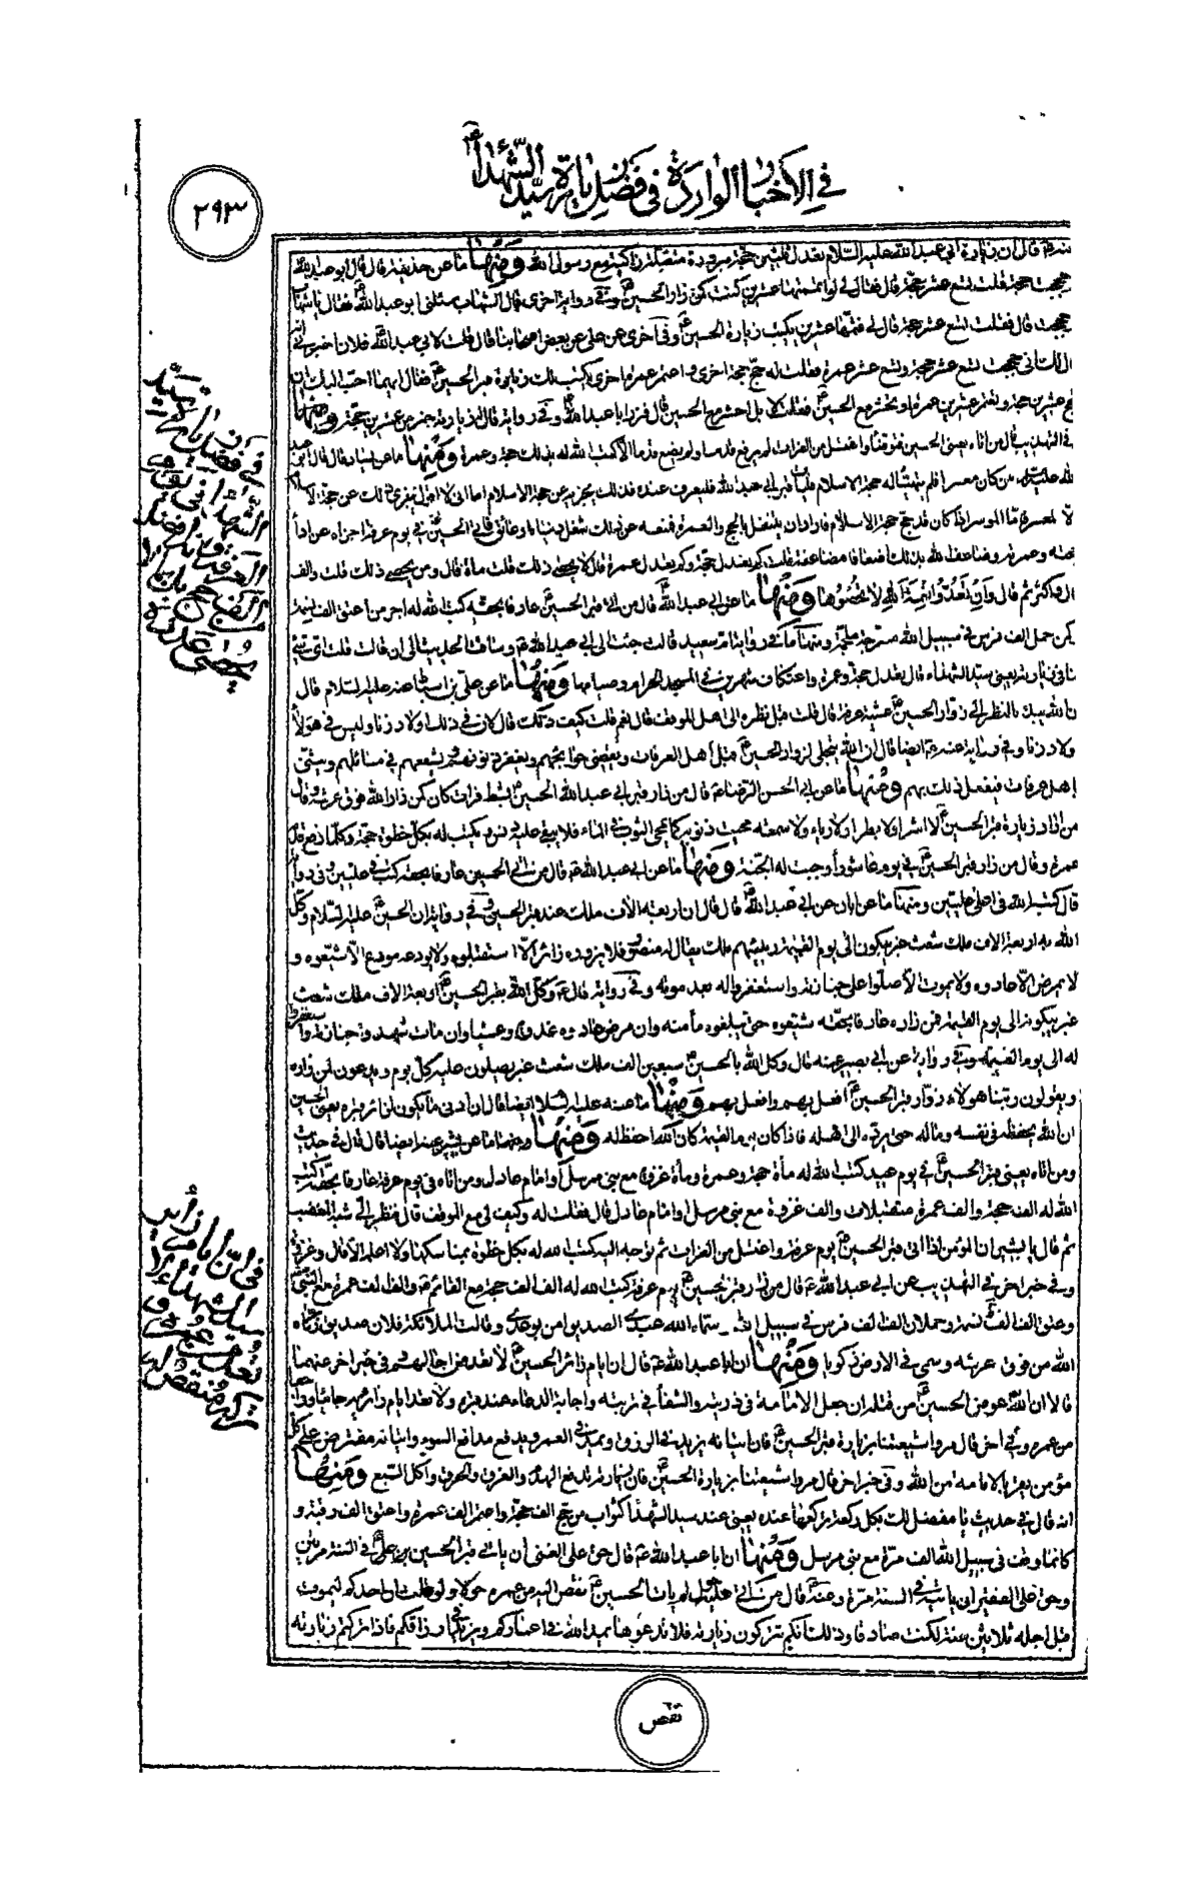 في الأخبار الواردة في فضل زيارة سيّد الشّهداء ع
٢٩٣
قال ان زيارة ابي عبد الله عليه السّلام تعدل ثلثين حجّة مبرورة متقبلة زاكية مع رسول الله ومنها ما عن حذيفة قال قال ابو عبد الله
حججت حجة قلت تسع عشر حجّة قال فقال لي لو اتممتها عشرين كنت كمن زار الحسين ع وفي رواية اخرى قال الشهاب سئلني ابو عبد الله فقال يا شهاب كم
حججت قال فقلت تسع عشر حجة قال لي فتمّها عشرين يكتب زيارة الحسين ع وفي اخرى عن علي عن بعض اصحابنا قال قلت لابي عبد الله ع فلان اخبرني انه
قال لك اني حججت تسع عشر حجة وتسع عشر عمرة فقلت له حجّ حجة اخرى واعتمر عمرة اخرى يكتب لك زيارة قبر الحسين ع فقال ايهما احبّ اليك ان
تحج عشرين حجة وتعتمر عشرين عمرة او تحشر مع الحسين ع فقلت لا بل احشر مع الحسين قال فزر ابا عبد الله ع وفي رواية قال زيارته خير من عشرين حجّة ومنها
في التهذيب قال من اتاه يعني الحسين فتوضأ واغتسل من الفرات لم يرفع قدما ولم يضع قدما الا كتب الله له بذلك حجة وعمرة ومنها ما عن قال قال ابو عبد
الله عليه من كان معسرا فلم يتهيّأ له حجة الاسلام فليأت قبر ابي عبد الله فليعرف عنده فذلك يجزيه عن حجة الاسلام اما اني لا اقول يجزي ذلك عن حجة الاسلام الا
لا لمعسر فامّا الموسر اذا كان قد حج حجة الاسلام فاراد ان يتنفل بالحج والعمرة فمنعه عن ذلك شغل دنيا او عائق فاتى الحسين ع في يوم عرفة اجزاه عن اداء
حجته وعمرته وضاعف الله بذلك اضعافا مضاعفة قلت كم تعدل حجة وكم تعدل عمرة قال لا يحصى ذلك قلت مأة قال ومن يحصى ذلك قلت والف
الف واكثر ثم قال وان تعدّوا نعمة الله لا تحصوها ومنها ما عن ابي عبد الله ع قال من اتى قبر الحسين ع عارفا بحقه كتب الله له اجر من اعتق الف نسمة
كمن حمل الف فرس في سبيل الله مسرجة ملجمة ومنها ما في رواية ام سعيد قالت جئت الى ابي عبد الله ع وساق الحديث الى ان قالت قلت اي شيء
لنا في زيارته يعني سيد الشهداء قال تعدل حجة وعمرة واعتكاف شهرين في المسجد الحرام وصيامها ومنها ما عن علي بن اسباط عنه عليه السلام قال
ان الله يبدء بالنظر الى زوار الحسين ع عشية عرفة قال قلت قبل نظره الى اهل الموقف قال نعم قلت كيف ذلك قال لان في اولئك اولاد زنا وليس في هؤلاء
اولاد زنا وفي رواية عنه ع ايضا قال ان الله يتجلى لزوار الحسين ع قبل أهل العرفات ويقضي حوائجهم ويغفر ذنوبهم ويشفعهم في مسائلهم ويثنّي
باهل عرفات فيفعل ذلك بهم ومنها ما عن ابي الحسن الرضا ع قال من زار قبر ابي عبد الله الحسين ع بشط فرات كان كمن زار الله فوق عرشه وقال
من اراد زيارة قبر الحسين ع لا اشرا ولا بطرا ولا رياء ولا سمعة محيت ذنوبه كما يمحى الثوب في الماء فلا يبقى عليه دنس ويكتب له بكل خطوة حجّة وكلما رفع قدمه
عمرة وقال من زار قبر الحسين ع في يوم عاشورا وجبت له الجنّة ومنها ما عن ابي عبد الله ع قال من اتى الحسين عارفا بحقه كتب في عليين وفي رواية
قال كتبه الله في اعلى عليين ومنها ما عن ابان عن ابي عبد الله ع قال قال ان اربعة الاف ملك عند قبر الحسين وفي رواية ان الحسين ع عليه السّلام وكّل
الله به اربعة الاف ملك شعث غبر يبكون الى يوم القيمة رئيسهم ملك يقال له منصور فلا يزوره زائر الّا استقبلوه ولا يودعه مودع الّا شيّعوه و
لا يمرض الا عادوه ولا يموت الا صلّوا على جنازته واستغفروا له بعد موته وفي رواية قال ع وكّل الله بقبر الحسين ع اربعة الاف ملك شعث
غبر يبكونه الى يوم القيمة فمن زاره عارفا بحقّه شيعوه حتى يبلغوه مأمنه وان مرض عادوه غدوة وعشيا وان مات شهدوا جنازته واستغفروا
له الى يوم القيمة وفي رواية عن ابي بصير عنه قال وكل الله بالحسين ع سبعين الف ملك شعث غبر يصلون عليه كلّ يوم ويدعون لمن زاره
ويقولون ربّنا هؤلاء زوّار قبر الحسين ع افعل بهم وافعل بهم ومنها ما عنه عليه السّلام ايضا قال ان ادنى ما يكون لزائر قبره يعني الحسين
ان الله يحفظه في نفسه وماله حتى يردّه الى اهله فاذا كان يوم القيمة كان الله احفظ له ومنها ومنها ما عن بشير عنه ايضا قال قال في حديث
ومن اتاه يعني قبر الحسين ع في يوم عيد كتب الله له مأة حجة وعمرة ومأة غزوة مع نبي مرسل او امام عادل ومن اتاه في يوم عرفة عارفا بحقه كتب
الله له الف حجة والف عمرة متقبلات والف غزوة مع نبي مرسل او امام عادل قال فقلت له وكيف لي مع الموقف قال فنظر اليّ شبه المغضب
ثم قال يا بشير ان المؤمن اذا اتى قبر الحسين ع يوم عرفة واغتسل من الفرات ثم توجه اليه كتب الله له بكل خطوة حجة بمناسكها ولا اعلمه الا قال وغزوة
وفي خبر اخر في التهذيب عن ابي عبد الله ع قال من زار قبر الحسين ع يوم عرفة كتب الله له الف الف حجة مع القائم ع والف الف عمرة مع النبي
وعتق الف الف نسمة وحملان الف الف فرس في سبيل الله وسماه الله عبدي الصديق امن بوعدي وقالت الملائكة فلان صديق زكاه
الله من فوق عرشه وسمي في الارض كروبيا ومنها ان ابا عبد الله ع قال ان ايام زائر الحسين ع لا تعد من اجالهم في خبر اخر عنهما
قالا ان الله عوض الحسين ع من قتله ان جعل الامامة في ذريته والشفاء في تربته واجابة الدعاء عند قبره ولا تعد ايام زائريه جائيا وراجعا
من عمره وفي اخر قال مروا شيعتنا بزيارة قبر الحسين ع فان اتيانه يزيد في الرزق ويمد في العمر ويدفع مدافع السوء واتيانه مفترض على كل
مؤمن يقر بالامامة من الله وفي خبر اخر قال مروا شيعتنا بزيارة الحسين ع فان زيارته تدفع الهدم والغرق والحرق واكل السّبع ومنها
انه قال في حديث يا مفضل لك بكل ركعة تركعها عنده يعني عند سيد الشهداء كثواب من حج الف حجة واعتمر الف عمرة واعتق الف رقبة و
كانما وقف في سبيل الله الف مرّة مع نبي مرسل ومنها ان ابا عبد الله ع قال حق على الغني ان ياتي قبر الحسين بن علي ع في السنة مرتين
وحق على الفقير ان ياتيه في السنة مرّة وعنه ع قال من اتى عليه حول لم يات الحسين ع نقص الله من عمره حولا ولو قلت ان احدكم ليموت
قبل اجله ثلاثين سنة لكنت صادقا وذلك انكم تتركون زيارته فلا تدعوها يمد الله في اعماركم ويزيد في ارزاقكم فاذا تركتم زيارته
نقص
في فضل زيارة سيّد
الشّهداء في يوم
العرفة وانه افضل
من الحج
في انّ ايام زائر
سيد الشهداء لا
تعد من عمره و
تركه منقص له